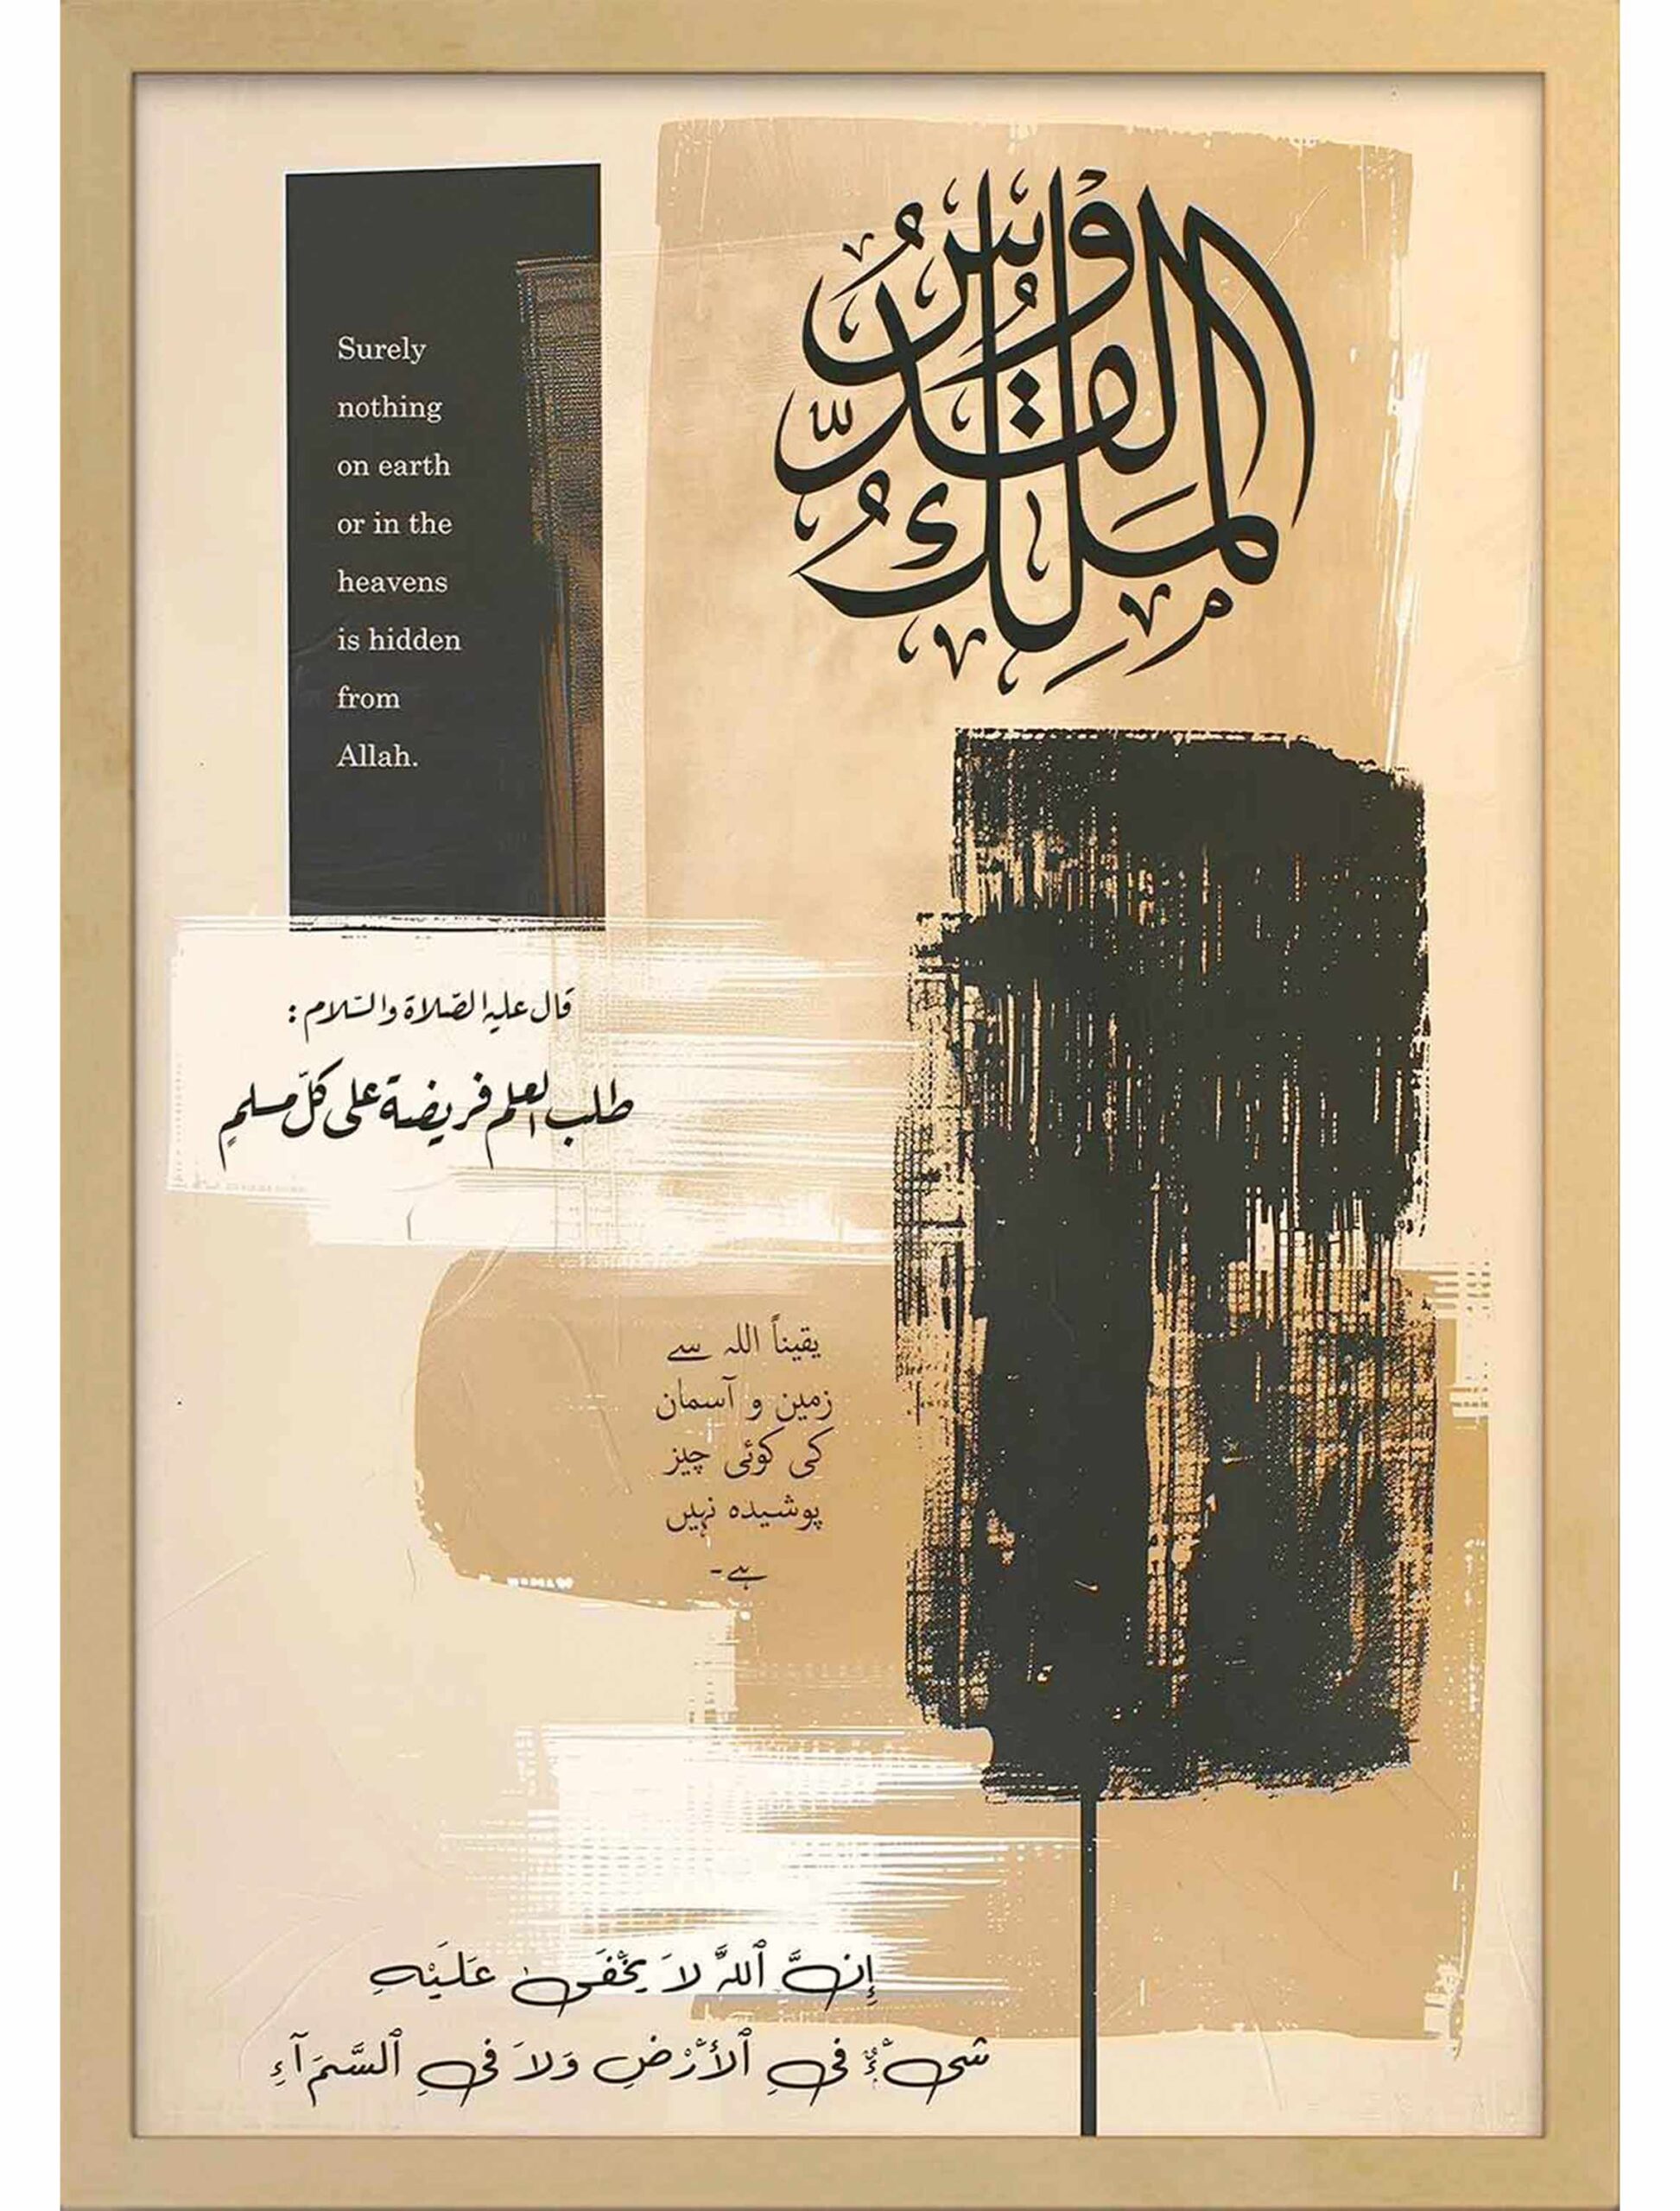 Surely
nothing
on earth
or in the
heavens
is hidden
from
Allah.
الملك القدوس
قال عليه الصّلاة والسّلام :
طلب العلم فريضة على كلّ مسلمٍ
يقيناً اللہ سے
زمین و آسمان
کی کوئی چیز
پوشیدہ نہیں
ہے۔
إِنَّ ٱللَّهَ لَا يَخْفَىٰ عَلَيْهِ
شَىْءٌ فِى ٱلْأَرْضِ وَلَا فِى ٱلسَّمَآءِ